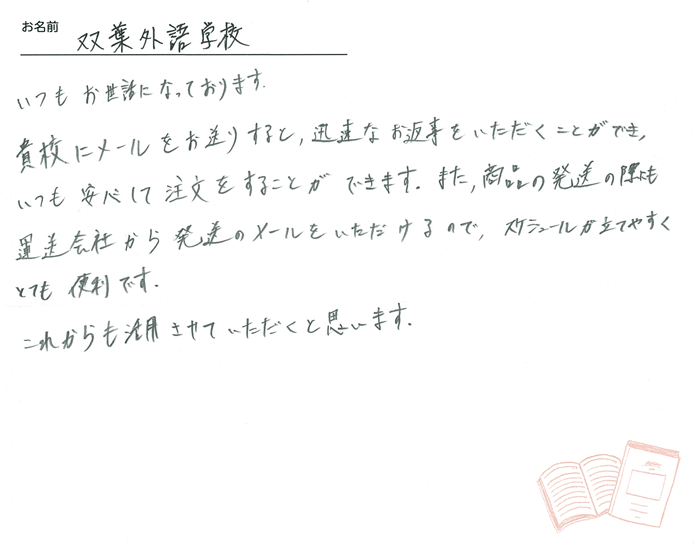 お名前 双葉外語学校
いつもお世話になっております.
貴校にメールをお送りすると, 迅速なお返事をいただくことができ,
いつも安心して注文をすることができます. また, 商品の発送の際にも
運送会社から発送のメールをいただけるので, スケジュールが立てやすく
とても便利です.
これからも活用させていただくと思います.